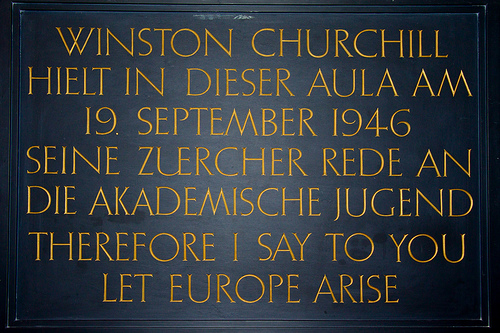 WINSTON CHURCHILL
HIELT IN DIESER AULA AM
19. SEPTEMBER 1946
SEINE ZUERCHER REDE AN
DIE AKADEMISCHE JUGEND
THEREFORE I SAY TO YOU
LET EUROPE ARISE